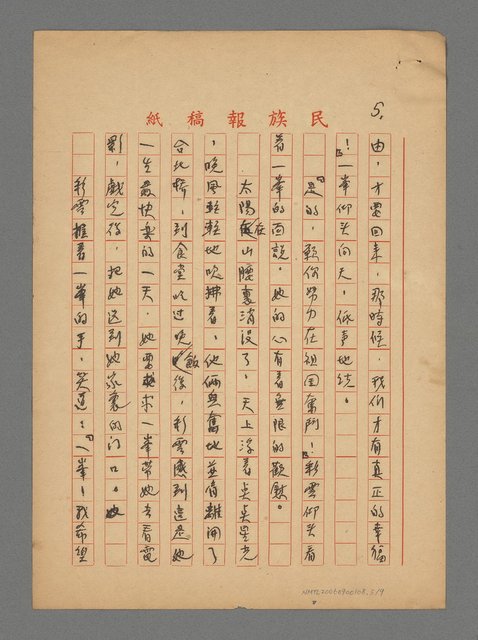 5.
民族報稿紙
由,才要回來,那時候,我們才有真正的幸福
!」一峯仰头向天,低声地說。
「是的,願你努力在祖国奮鬥!」彩雲仰头看
着一峯的面說。她的心有着無限的歡慰。
太陽在山腰裏消沒了。天上浮着点点星光
,晚風輕輕地吹拂着,他倆興奮地並肩離開了
台北橋,到食堂吃过晚飯後,彩雲感到這是她
一生最快樂的一天,她要求一峯带她去看電
影,戲完後,把她送到她家裏的门口。
彩雲握着一峯的手,笑道:「一峯!我希望
NMTL20060900108.5/9